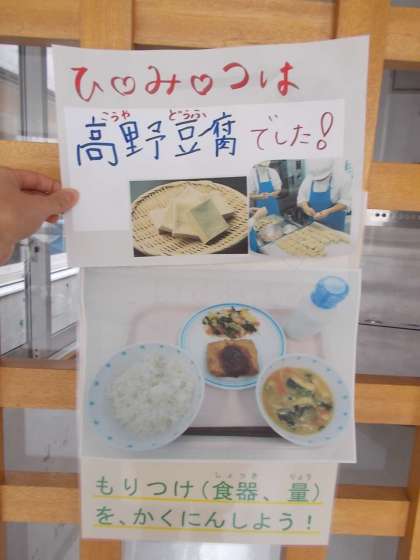 ひ♡み♡つは
こうや どうふ
高野豆腐でした!
しょっき りょう
もりつけ(食器、量)
を、かくにんしよう!